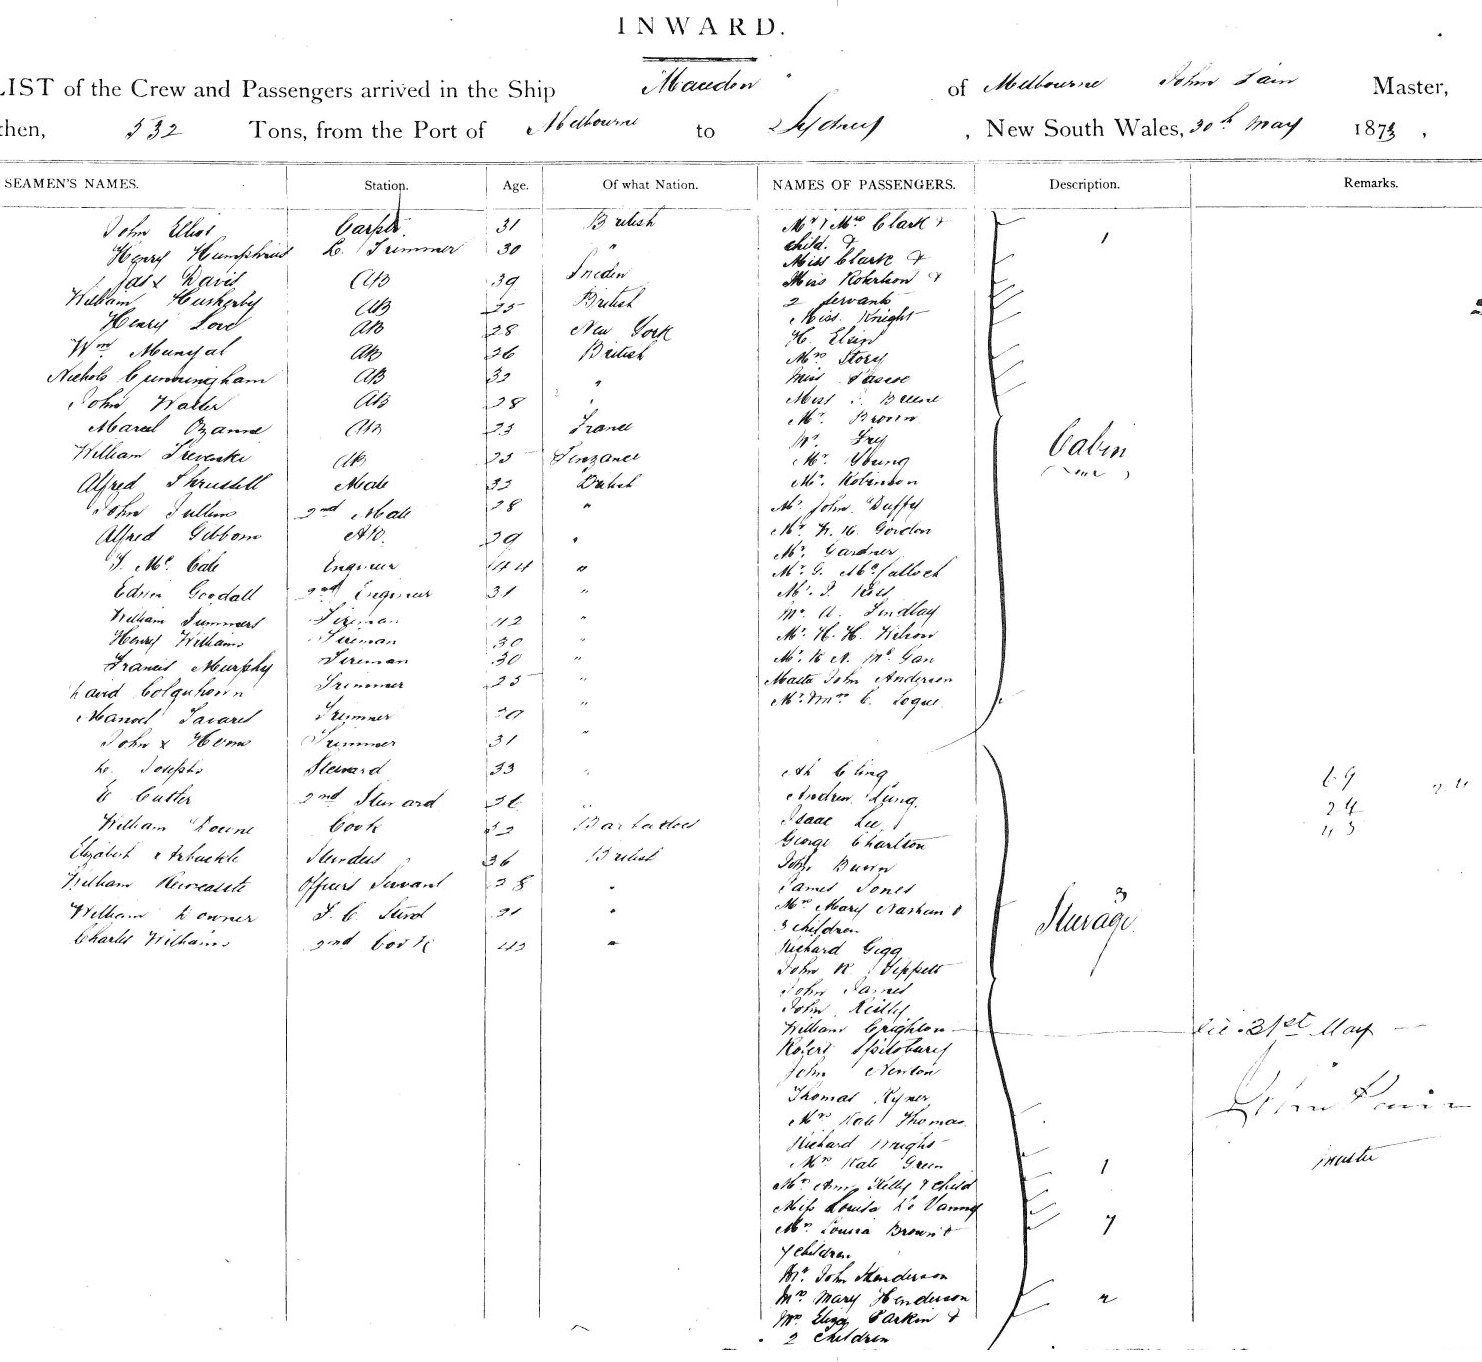 INWARD.
LIST of the Crew and Passengers arrived in the Ship Macedon of Melbourne John Lain Master,
then, 532 Tons, from the Port of Melbourne to Sydney, New South Wales, 30th May 1873,
SEAMEN'S NAMES. Station. Age. Of what Nation. NAMES OF PASSENGERS. Description. Remarks.
John Elliot Carptr. 31 British
Henry Humphries L. Trimmer 30 "
Jas x Davis AB 39 Sweden
William Huskerby AB 25 British
Henry Love AB 28 New York
Wm AB 26 British
Nichols Cunningham AB 32 "
John Walter AB 28 "
Marcel Ozanne AB 23 France
William AB 25 Penzance
Alfred Thrustell Mate 33 British
John Tullins 2nd Mate 28 "
Alfred Gibbons AB. 29 "
J. Mc. Cale Engineer 44 "
Edwin Goodall 2nd Engineer 31 "
William Summers Fireman 42 "
Henry Williams Fireman 30 "
Francis Murphy Fireman 30 "
David Colquhoun Trimmer 25 "
Manoel Tavares Trimmer "
John x Trimmer 31 "
Josephs Steward 33 "
E Cutler 2nd Steward 36 "
William Cook 52 Barbadoes
Elizabeth Arbuckle Stewdess 36 British
William Officers Servant 28 "
William Downer F. C. Stewd 21 "
Charles Williams 2nd Cook 42 "
Mr & Mrs Clark &
child. &
Miss Clark &
Miss Robertson &
2 servants
Miss. Knight
H. Elsin
Mrs Story
Miss Pascoe
Miss J. Breene
Mr. Brown
Mr. Fry
Mr. Young
Mr. Robinson
Mr. John Duffy
Mr. Gordon
Mr. Gardner
Mr. G. McCalloch
Mr. J. Kiss
Mr. A. Lindlay
Mr. H. H. Wilson
Mr. R A. Mc. Gan
Master John Anderson
Mr. & Mrs C. Logue
1
Cabin
Ah Cling
Andrew Lung
Isaac Lee
George Charlton
John Buern
James Jones
Mrs Mary Nasham &
3 children
Richard Gigg
John R Tippett
John James
John Reilly
William Crighton
Robert Spilsbury
John Newton
Thomas Kyner
Mrs Kate Thomas
Richard Wright
Mrs Kate Green
Mrs Ann Kelly & child
Miss Louisa De Vanny
Mrs Louisa Brown &
7 children
Mr. John Henderson
Mrs Mary Henderson
Mrs Eliza Parkin &
2 children
3
Steerage
1
7
2
19
24
43
31st May
John Lain
Master